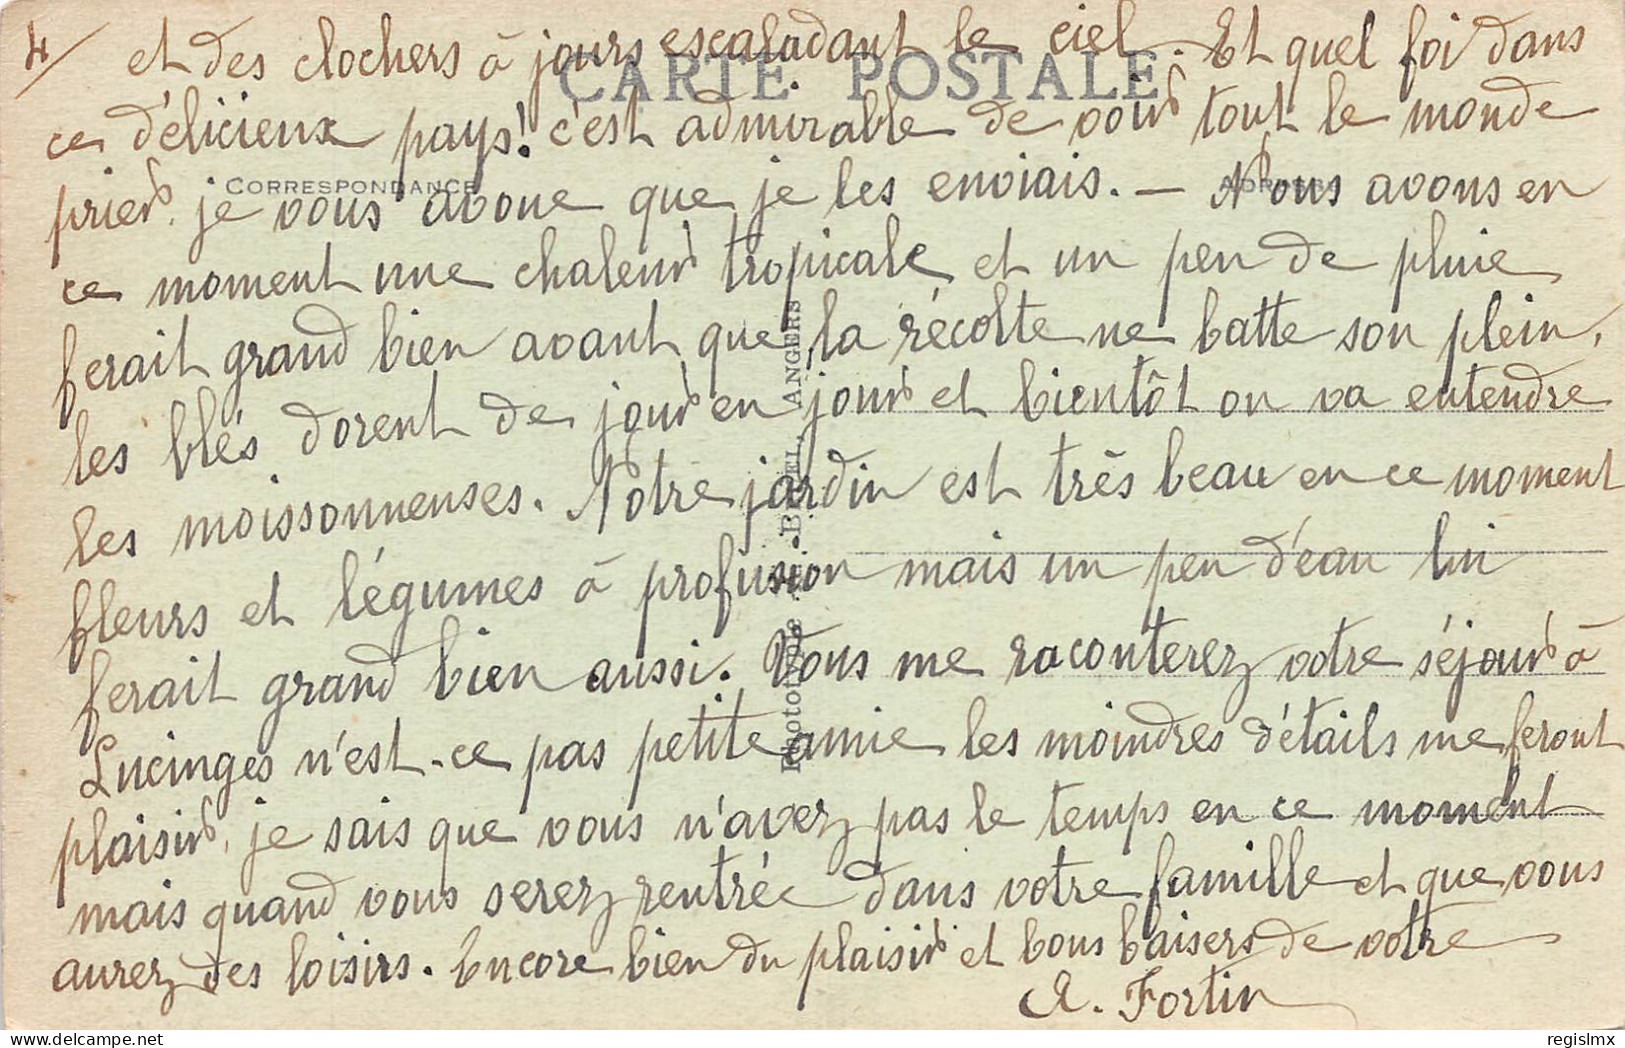 4/ et des clochers à jours escaladant le ciel. Et quel foi dans
CARTE POSTALE
ce délicieux pays! c'est admirable de voir tout le monde
CORRESPONDANCE
ADRESSE
prier, je vous avoue que je les enviais. — Nous avons en
ce moment une chaleur tropicale et un peu de pluie
ferait grand bien avant que la récolte ne batte son plein,
les blés dorent de jour en jour et bientôt on va entendre
les moissonneuses. Notre jardin est très beau en ce moment
fleurs et légumes à profusion mais un peu d'eau lui
ferait grand bien aussi. Vous me raconterez votre séjour à
Lucinges n'est-ce pas petite amie les moindres détails me feront
plaisir, je sais que vous n'avez pas le temps en ce moment
mais quand vous serez rentrée dans votre famille et que vous
aurez des loisirs. Encore bien du plaisir et bons baisers de votre
A. Fortin
Phototypie BRUEL, ANGERS
delcampe.net
regislmx